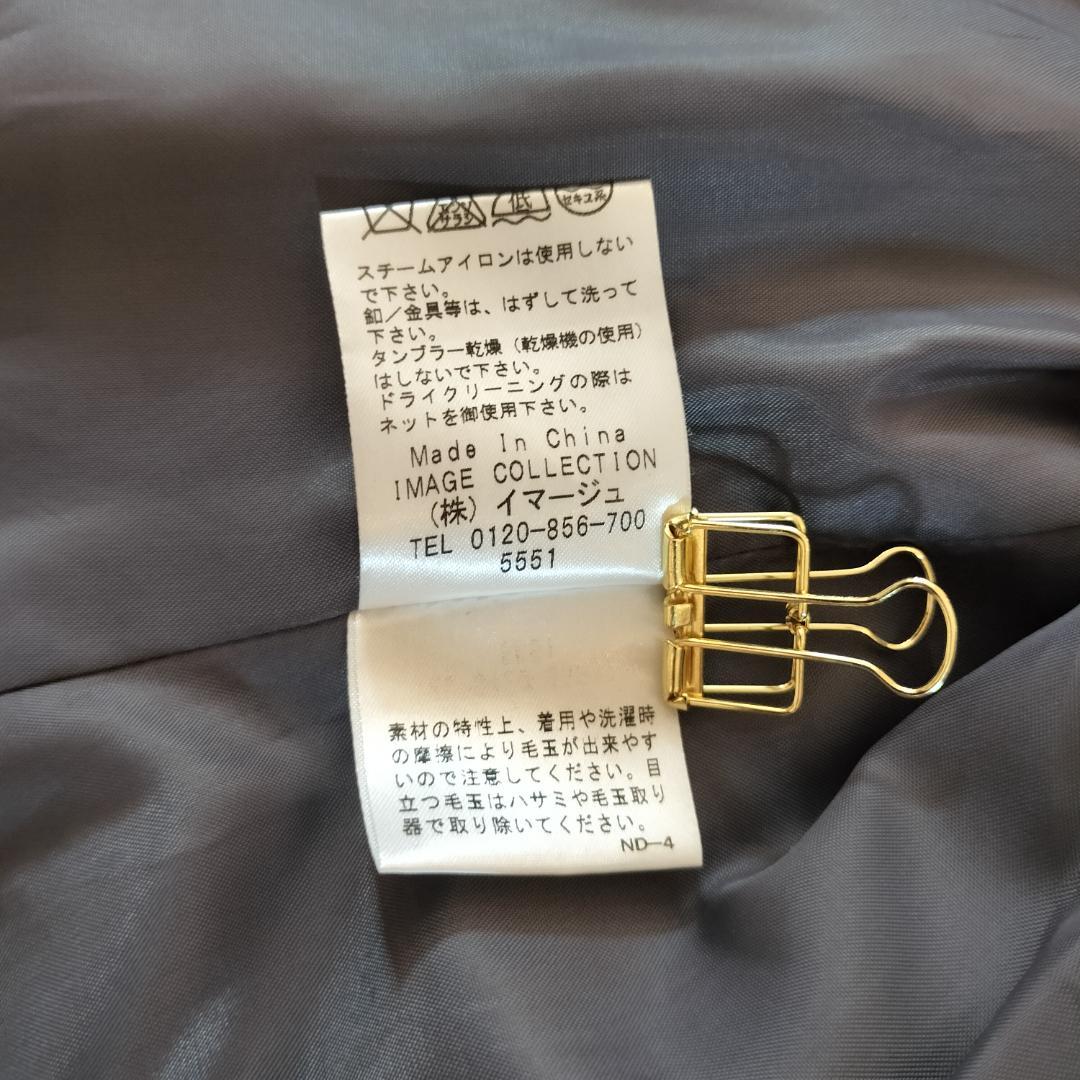 エンソ
サラシ
低
セキユ系
スチームアイロンは使用しない
で下さい。
釦／金具等は、はずして洗って
下さい。
タンブラー乾燥（乾燥機の使用）
はしないで下さい。
ドライクリーニングの際は
ネットを御使用下さい。
Made In China
IMAGE COLLECTION
（株）イマージュ
TEL 0120-856-700
5551
素材の特性上、着用や洗濯時
の摩擦により毛玉が出来やす
いので注意してください。目
立つ毛玉はハサミや毛玉取り
器で取り除いてください。
ND-4